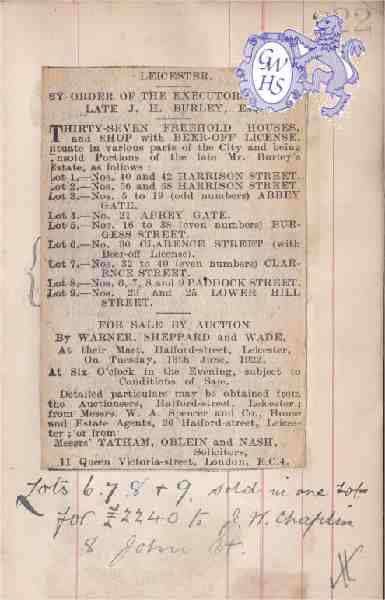 222
GWHS
LEICESTER.
BY ORDER OF THE EXECUTOR
LATE J. H. BURLEY, ESQ
THIRTY-SEVEN FREEHOLD HOUSES,
and SHOP with BEER-OFF LICENSE,
situate in various parts of the City and being
unsold Portions of the late Mr. Burley's
Estate, as follows:
Lot 1.—Nos. 40 and 42 HARRISON STREET.
Lot 2.—Nos. 56 and 68 HARRISON STREET.
Lot 3.—Nos. 5 to 19 (odd numbers) ABBEY
GATE.
Lot 4.—No. 21 ABBEY GATE.
Lot 5.—Nos. 16 to 38 (even numbers) BUR-
GESS STREET.
Lot 6.—No. 30 CLARENCE STREET (with
Beer-off License).
Lot 7.—Nos. 32 to 40 (even numbers) CLAR-
ENCE STREET.
Lot 8.—Nos. 6, 7, 8 and 9 PADDOCK STREET.
Lot 9.—Nos. 23 and 25 LOWER HILL
STREET.
FOR SALE BY AUCTION
By WARNER, SHEPPARD and WADE,
At their Mart, Halford-street, Leicester,
On Tuesday, 13th June, 1922,
At Six O'clock in the Evening, subject to
Conditions of Sale.
Detailed particulars may be obtained from
the Auctioneers, Halford-street, Leicester;
from Messrs. W. A. Spencer and Co., House
and Estate Agents, 20 Halford-street, Leices-
ter; or from
Messrs TATHAM, OBLEIN and NASH,
Solicitors,
11 Queen Victoria-street, London, E.C.4.
Lots 6.7.8 + 9. sold in one lot
for £2240 to J. W. Chaplin
8 John St.